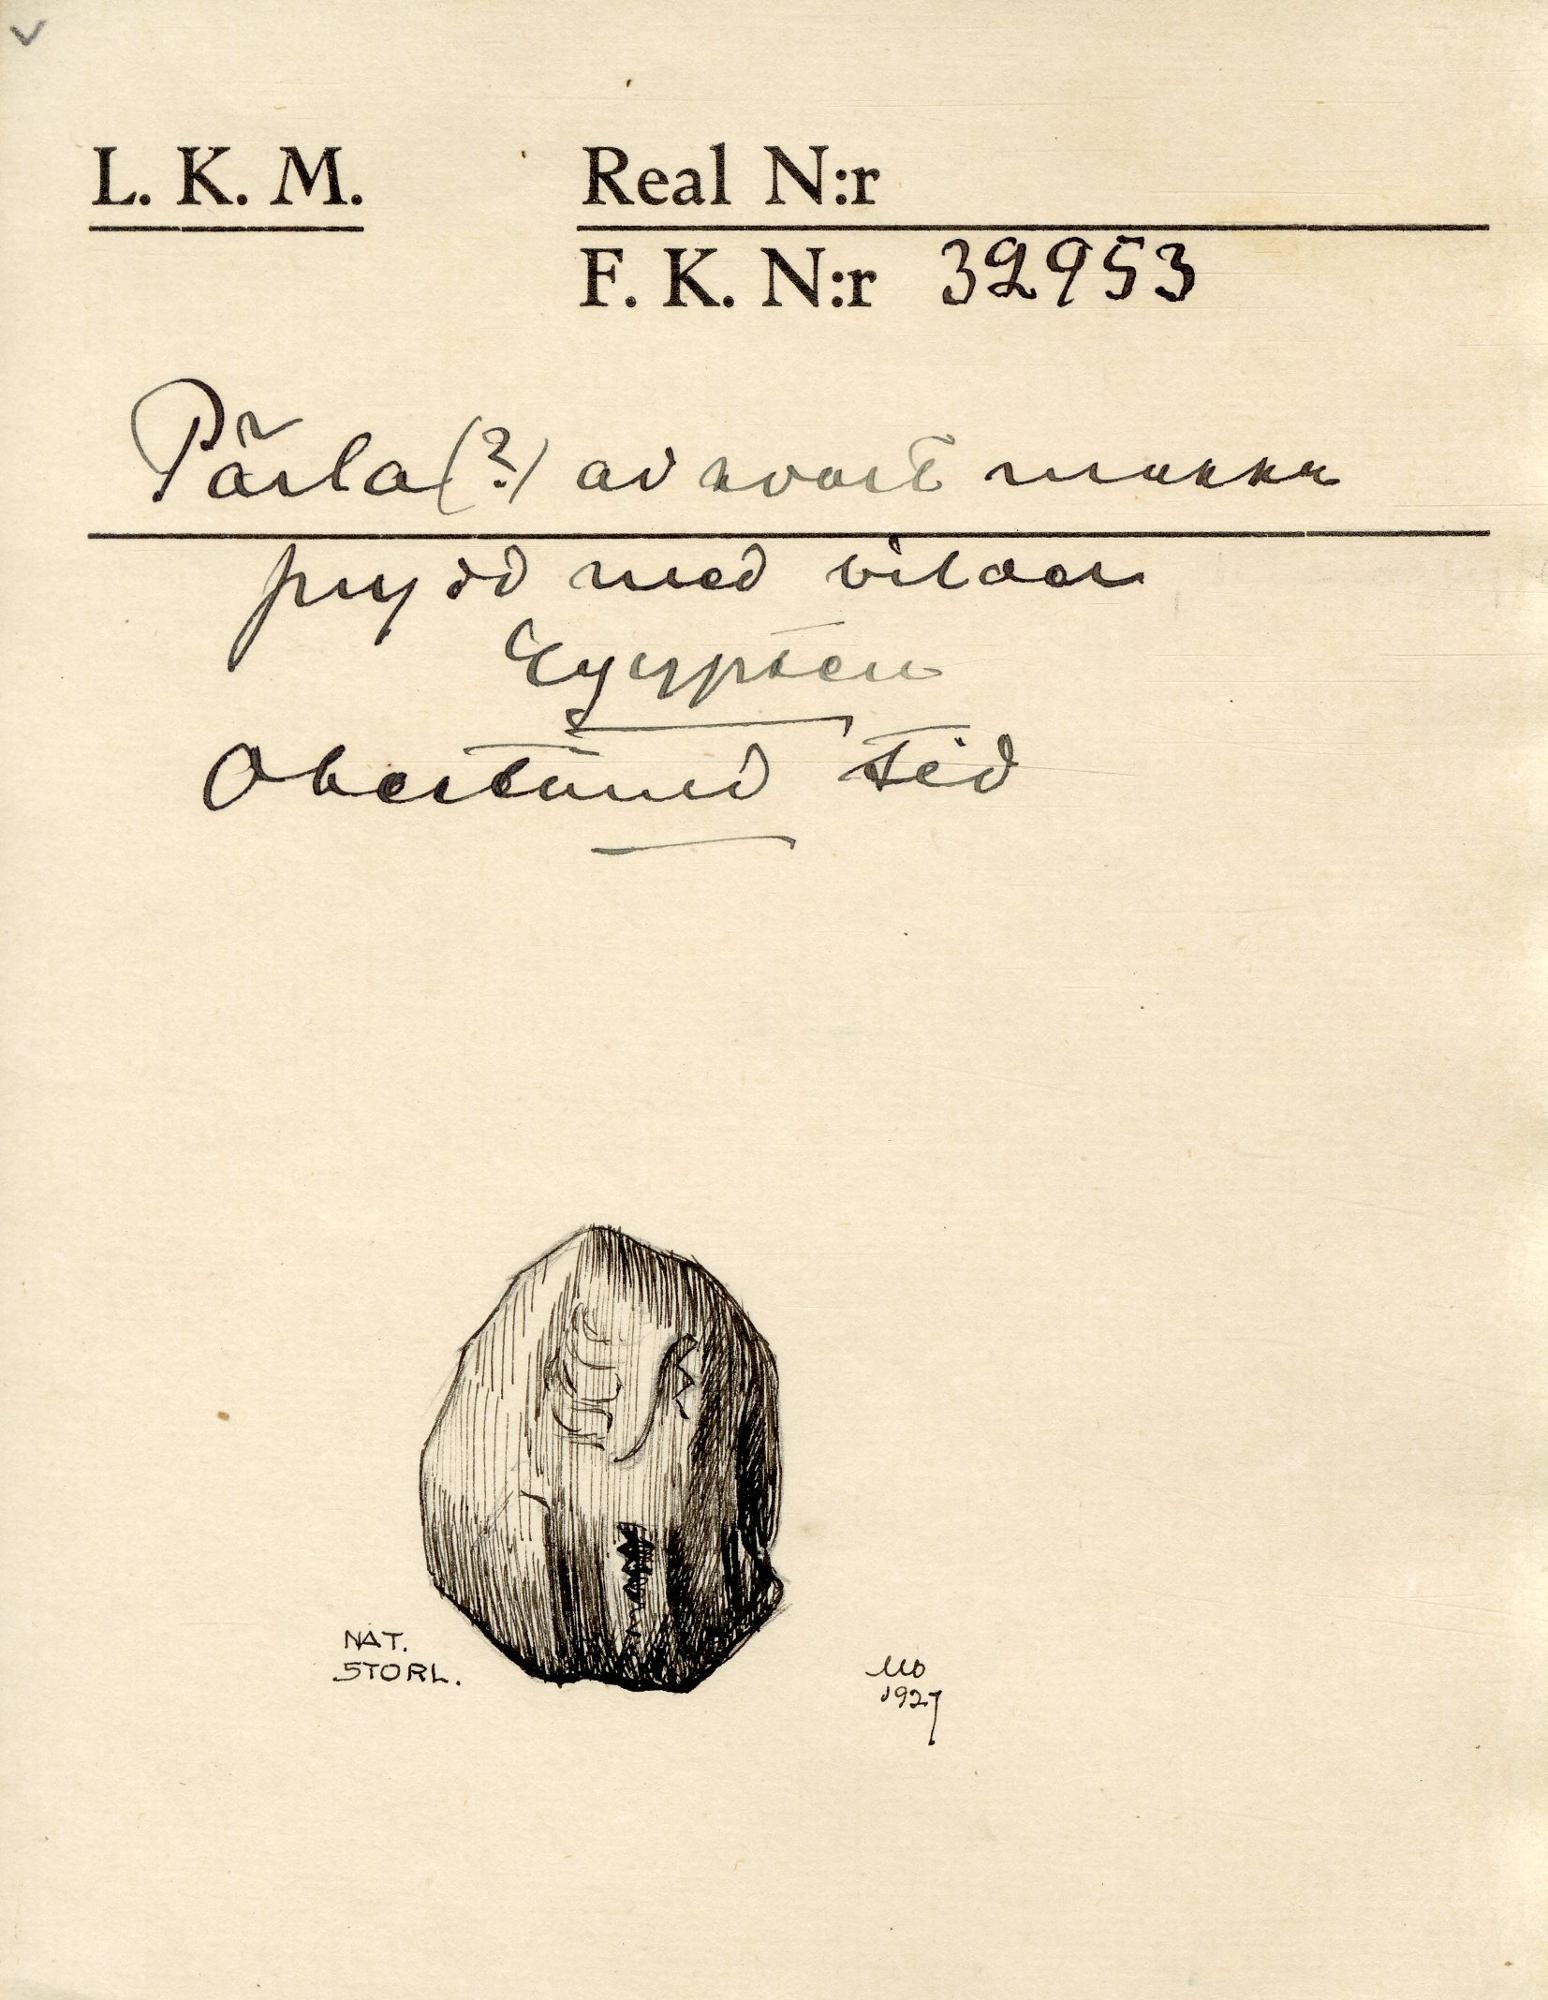 L. K. M.
Real N:r
F. K. N:r 32953
Pärla (?) av svart massa
prydd med bilder
Egypten
Obestämd tid
NAT.
STORL.
MO
1927